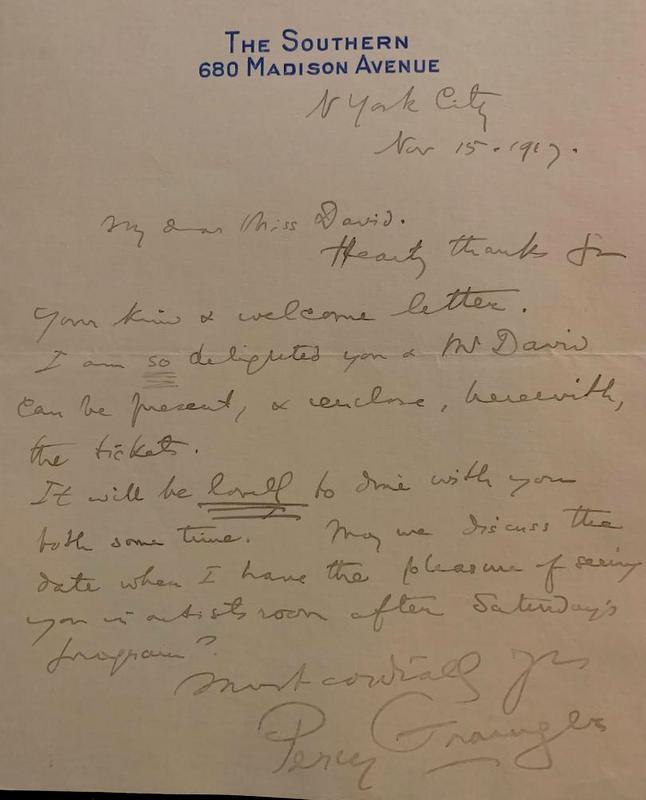 THE SOUTHERN
680 MADISON AVENUE
N York City
Nov 15. 1917.
My dear Miss David.
Hearty thanks for
your kind & welcome letter.
I am so delighted you & Mr David
can be present, & enclose, herewith,
the tickets.
It will be lovely to dine with you
both some time. May we discuss the
date when I have the pleasure of seeing
you in artists room after Saturday's
program?
Most cordially yrs
Percy Grainger